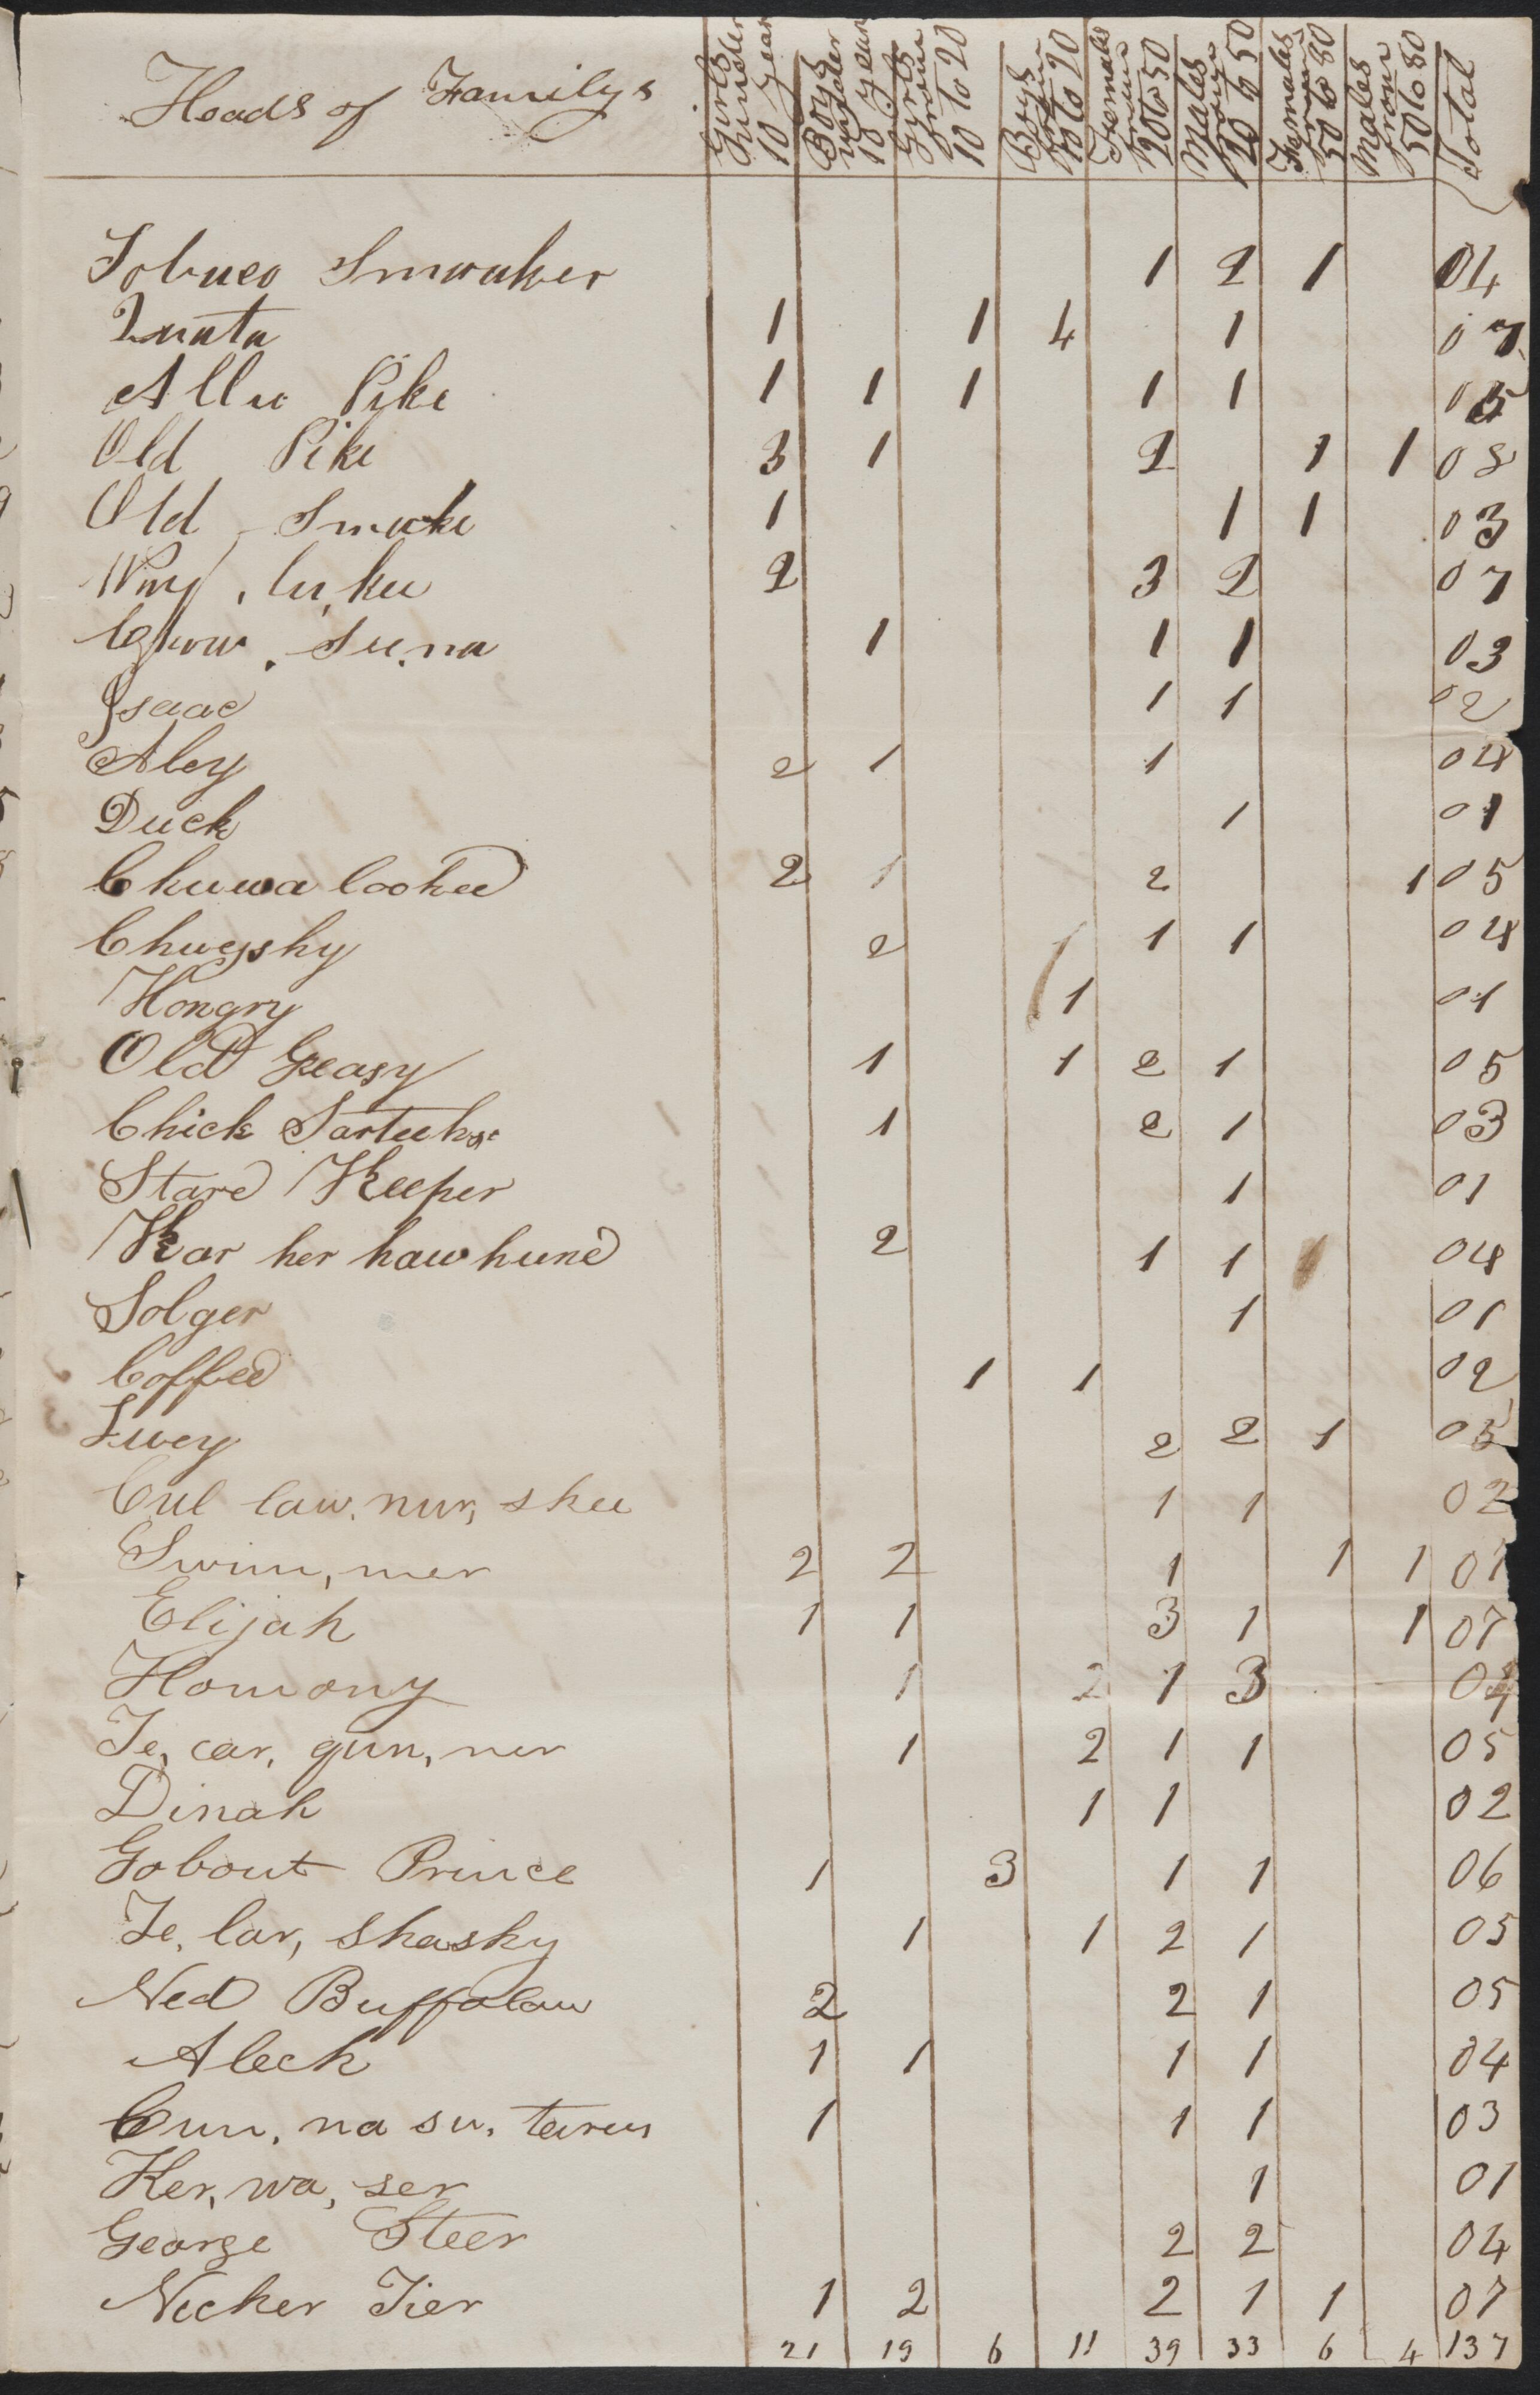 Heads of Familys Girls under 10 year Boys under 10 year Gyrls from 10 to 20 Boys from 10 to 20 Females from 20 to 50 Males from 20 to 50 Females from 50 to 80 Males from 50 to 80 Total
Tobaco Smoaker 1 2 1 04
1 1 4 1 07
Pike 1 1 1 1 1 05
Old Pike 3 1 2 1 1 08
Old Smoke 1 1 1 03
2 3 2 07
1 1 1 03
Isaac 1 1 02
Aley 2 1 1 04
Duck 1 01
Chuwa lookee 2 1 2 1 05
Chweyshy 2 1 1 04
Hongry 1 01
Old Greasy 1 1 2 1 05
Chick Sarteeke 1 2 1 03
Stare Keeper 1 01
Kar her haw hune 2 1 1 04
Solger 1 01
Coffee 1 1 02
2 2 1 05
Cul law. nur, shee 1 1 02
Swim, mer 2 2 1 1 1 07
Elijah 1 1 3 1 1 07
Homony 1 2 1 3 07
Te, car, gun, ner 1 2 1 1 05
Dinah 1 1 02
Gobout Prince 1 3 1 1 06
Te, lar, shashy 1 1 2 1 05
Ned Buffalow 2 2 1 05
Aleck 1 1 1 1 04
Cun, na su, 1 1 1 03
Ker, wa, ser 1 01
George Steer 2 2 04
Necker Tier 1 2 2 1 1 07
21 19 6 11 39 33 6 4 137